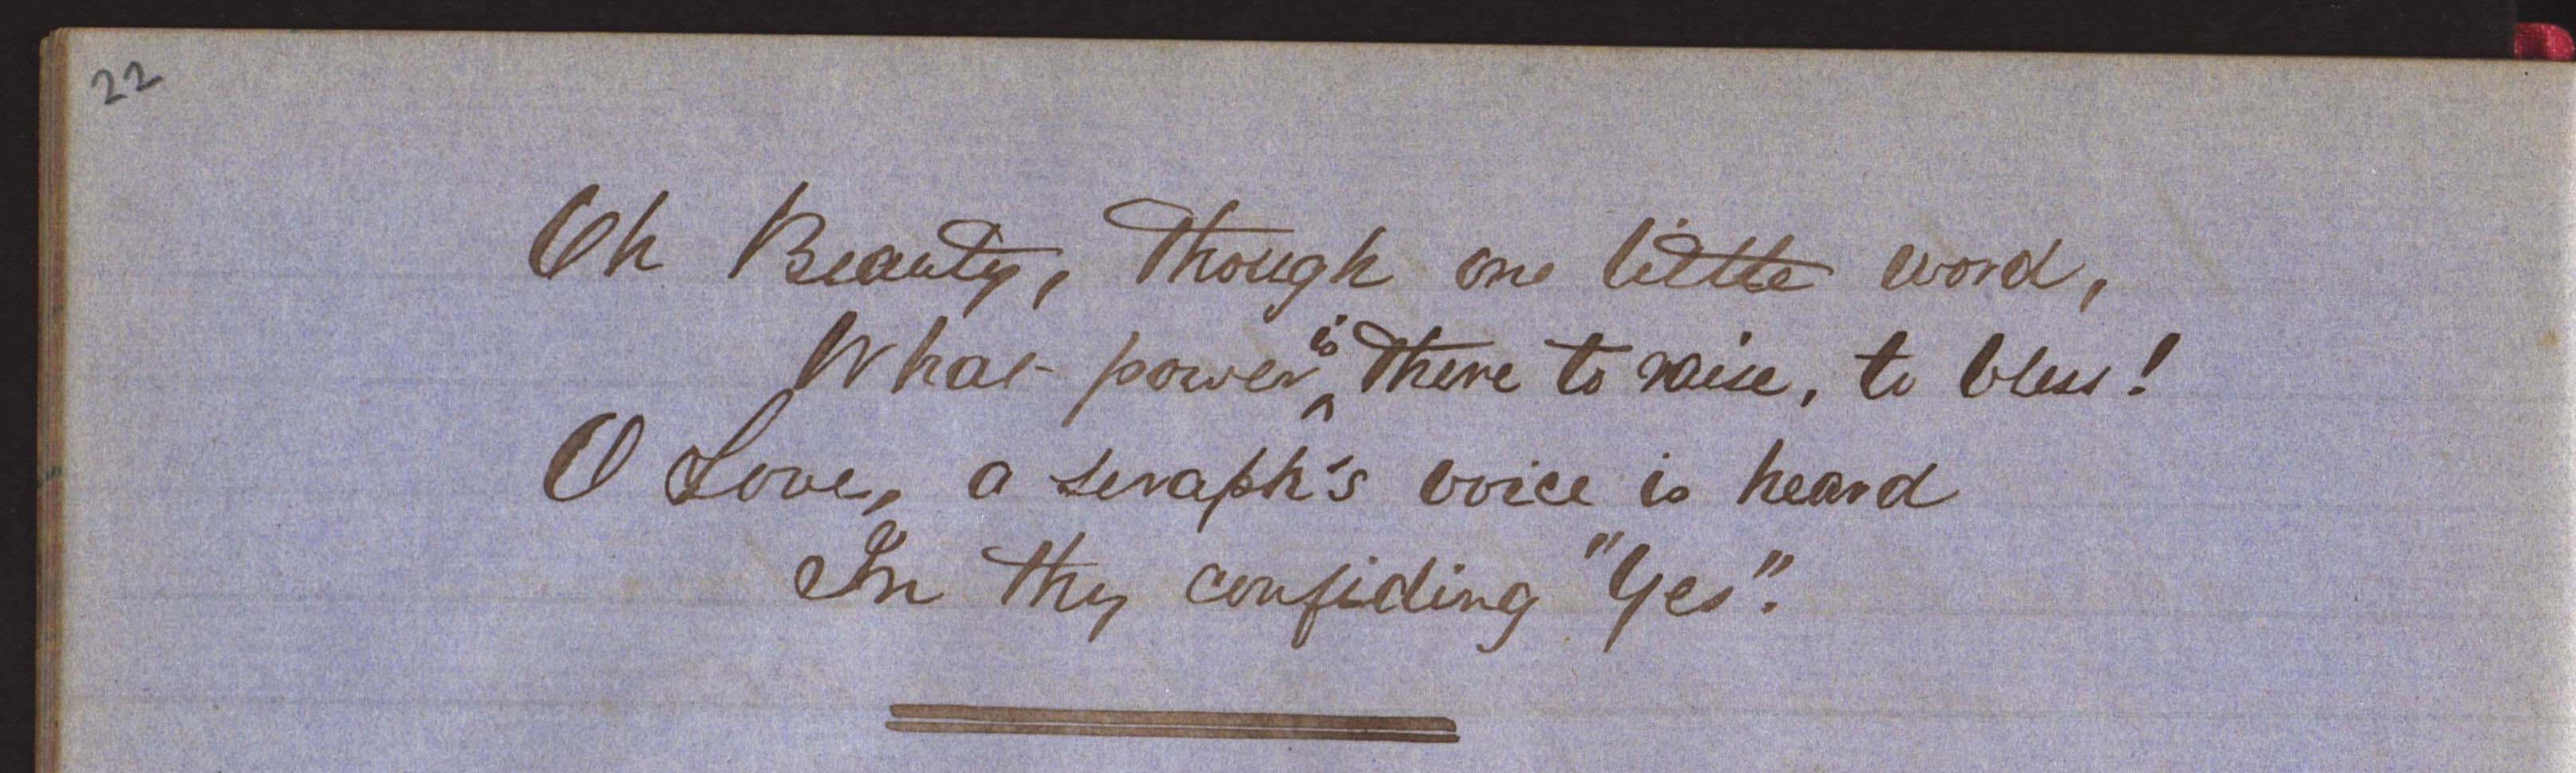 22
Oh Beauty, though one little word,
What power is there to raise, to bless!
O Love, a seraph's voice is heard
In thy confiding "Yes".